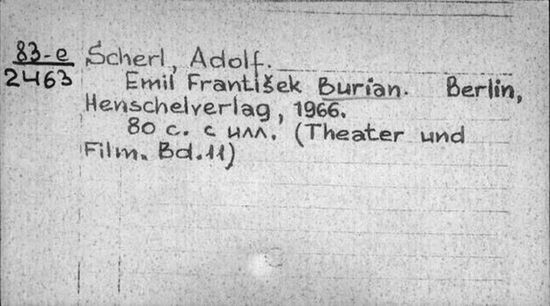 83-e Scherl, Adolf.
2463 Emil František Burian. Berlin,
Henschelverlag, 1966.
80 с. с илл. (Theater und
Film. Bd.11)